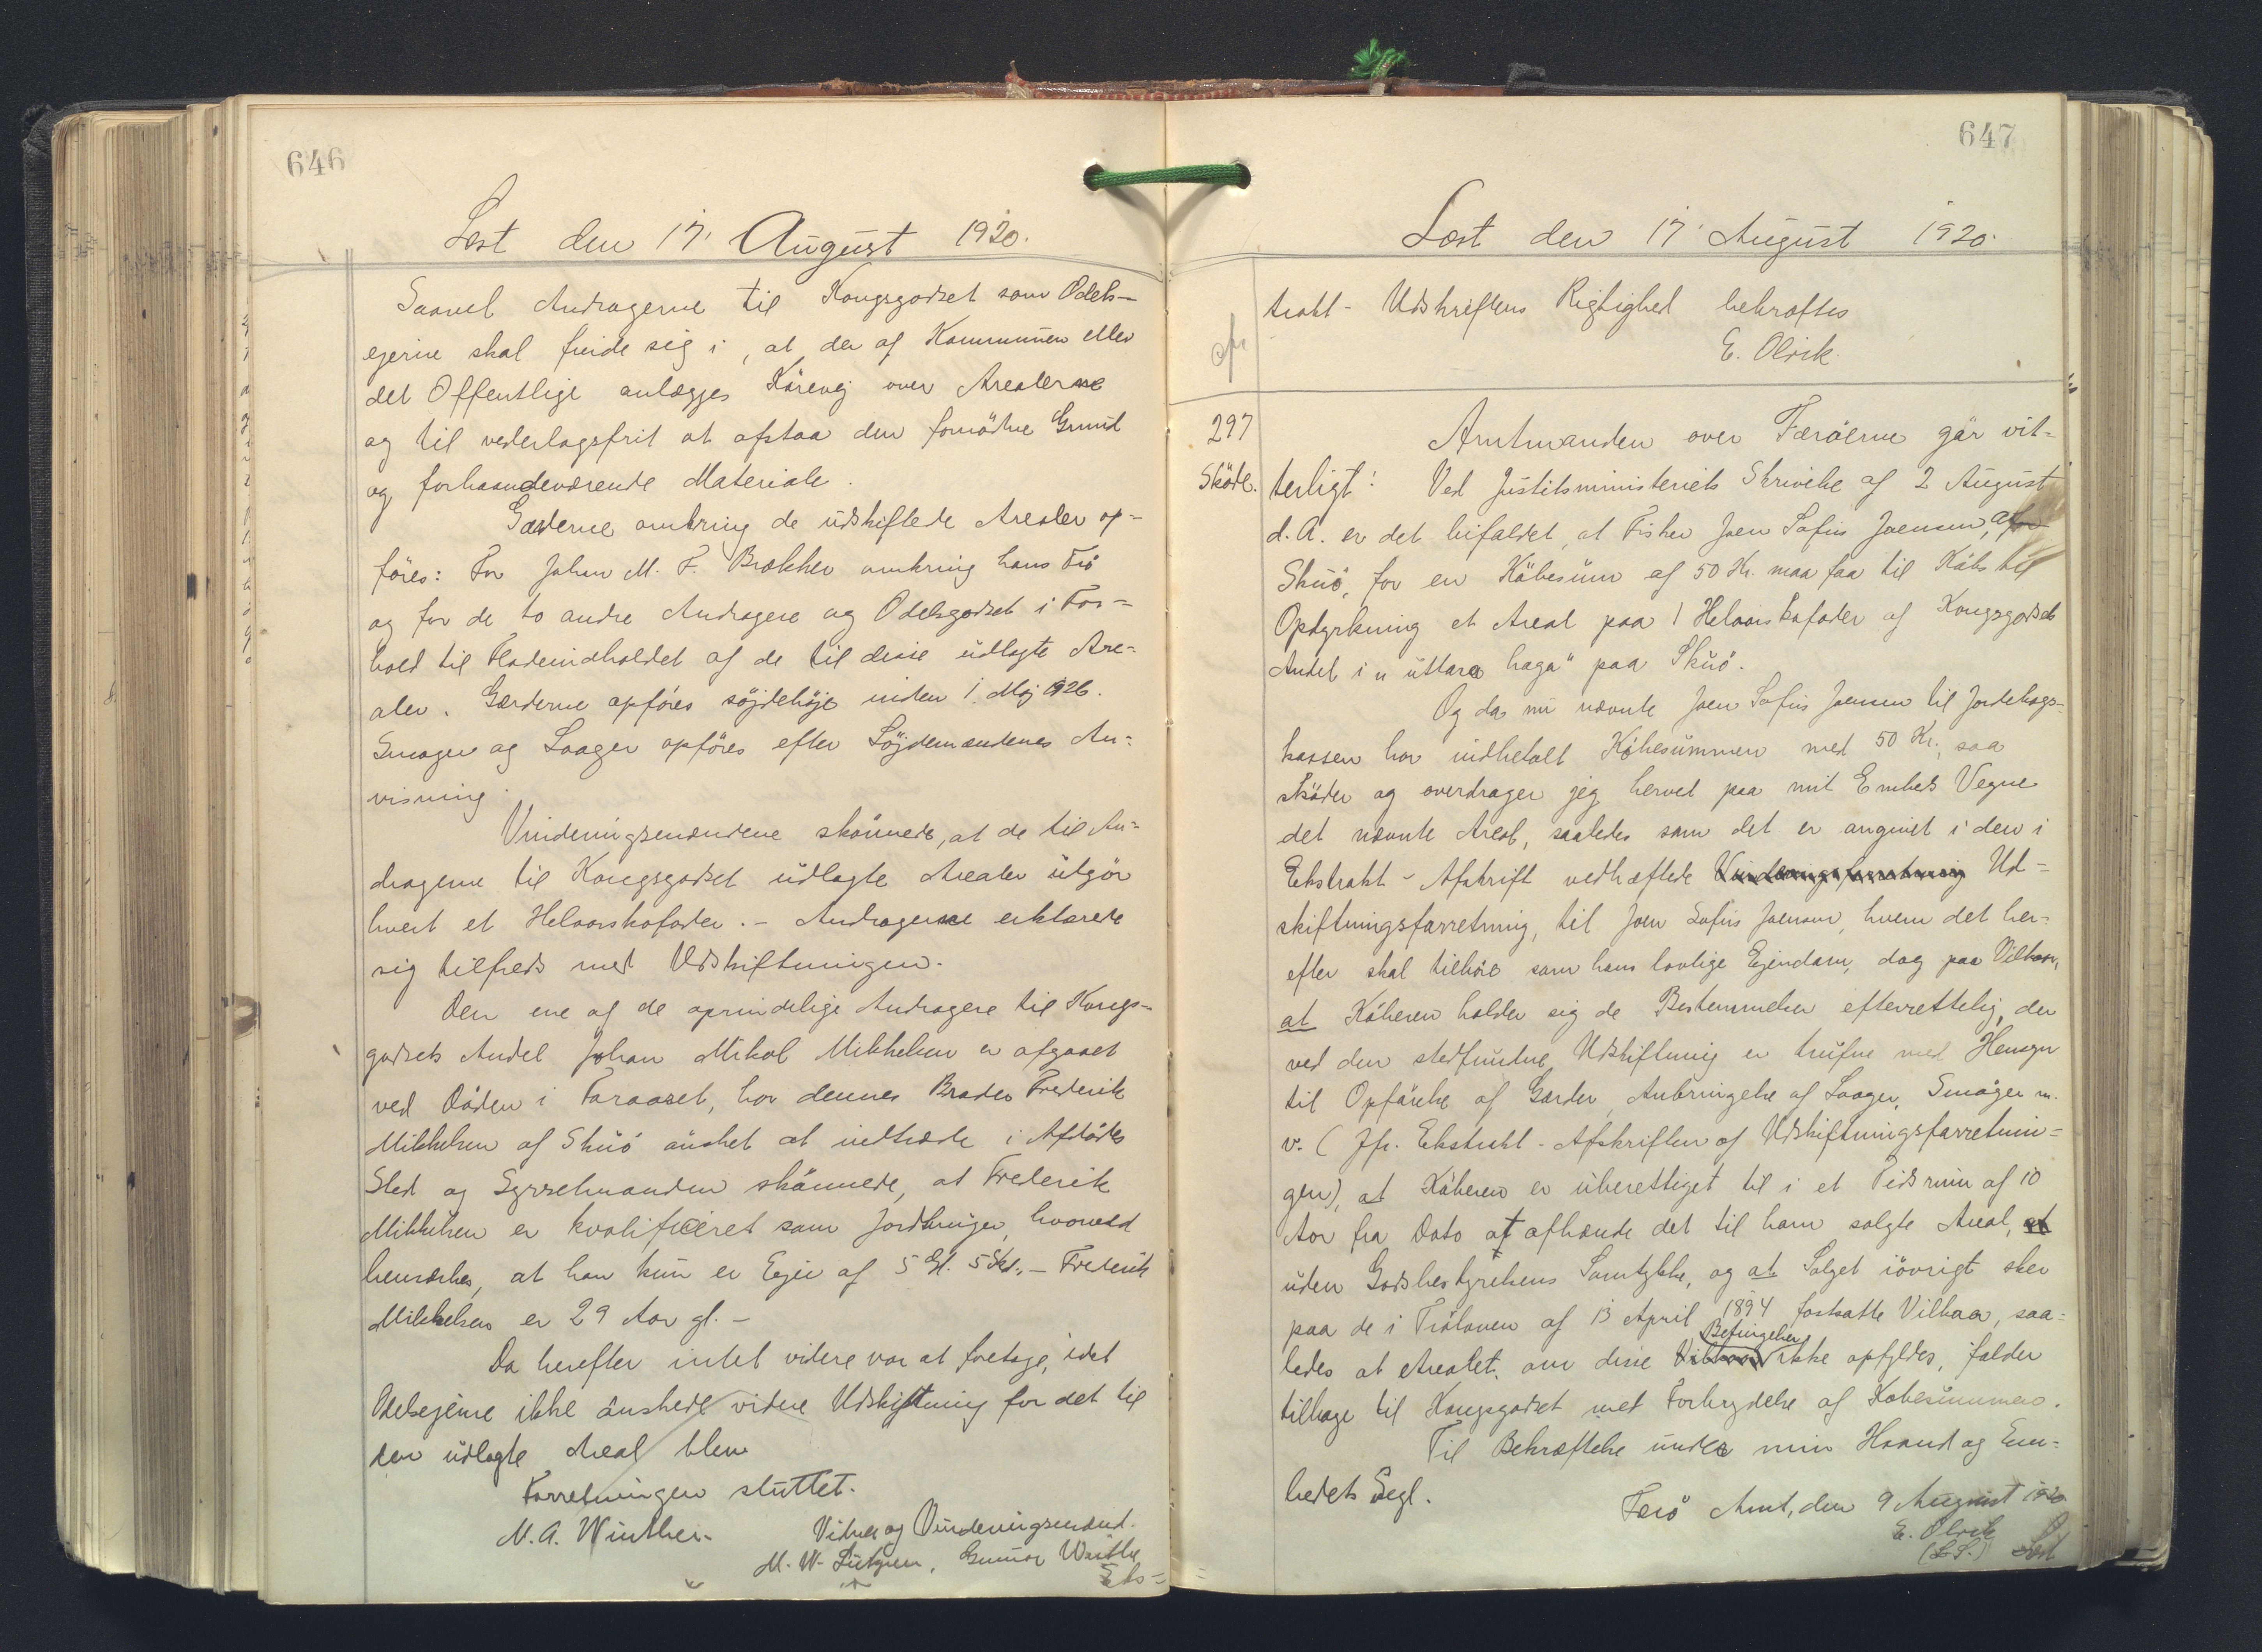 646
Læst den 17' August 1920.
Saavel Andragerne til Kongsgodset som Odels-
ejerne skal finde sig i, at der af Kommunen eller
det Offentlige anlægges Kørevej over Arealerne
og til vederlagsfrit at afstaa den fornödne Grund
og forhaandeværende Materiale.
Gærderne omkring de udskiftede Arealer op-
föres: For Johan M. F. Brekker omkring hans Trö
og for de to andre Andragere og Odelsgodset i For-
hold til Fladeindholdet af de til disse udlagte Are-
aler. Gærderne opföres söjdehöje inden 1. Maj 1926.
Smoger og Laager opföres efter Söjdemændenes An-
visning.
Vurderingsmændene skönnede, at de til An-
dragerne til Kongsgodset udlagte Arealer udgör
hvert et Helaarskofoder. - Andragerne erklærede
sig tilfreds med Udskiftningen.
Den ene af de oprindelige Andragere til Kongs-
godsets Andel Johan Mikal Mikkelsen er afgaaet
ved Döden i Foraaret, har dennes Broder Frederik
Mikkelsen af Skuö önsket at indtræde i Afdödes
Sted og Sysselmanden skönnede, at Frederik
Mikkelsen er kvalificeret som Jordbruger, hvorved
bemærkes, at han kun er Ejer af 5 Gl. 5 Skd. - Frederik
Mikkelsen er 29 Aar gl. -
Da herefter intet videre var at foretage, idet
Odelsejerne ikke önskede videre Udskiftning for det til
dem udlagte Areal blev
Forretningen sluttet.
M. A. Winther.
Vidner og Vurderingsmænd.
M. W. Lützen, Gunnar Winther
Eks-
647
Læst den 17' August 1920.
trakt - Udskriftens Rigtighed bekræftes
E. Olrik.
297
Sköde.
Amtmanden over Færöerne gör vit-
terligt: Ved Justitsministeriets Skrivelse af 2 August
d. A. er det bifaldet, at Fisker Joen Sofus Joensen, af
Skuö, for en Köbesum af 50 Kr. maa faa til Köbs til
Opdyrkning et Areal paa 1 Helaarskofoder af Kongsgodsets
Andel i "uttara haga" paa Skuö.
Og da nu nævnte Joen Sofus Joensen til Jordebogs-
kassen har indbetalt Köbesummen med 50 Kr., saa
sköder og overdrager jeg herved paa mit Embeds Vegne
det nævnte Areal, saaledes som det er angivet i den i
Ekstrakt - Afskrift vedhæftede Vurderingsforretning Ud-
skiftningsforretning, til Joen Sofus Joensen, hvem det her-
efter skal tilhöre som hans lovlige Ejendom, dog paa Vilkaar,
at Köberen holder sig de Bestemmelser efterrettelig, der
ved den stedfundne Udskiftning er trufne med Hensyn
til Opförelse af Gærder, Anbringelse af Laager, Smöger m.
v. (Jfr. Ekstrakt - Afskriften af Udskiftningsforretnin-
gen), at Köberen er uberettiget til i et Tidsrum af 10
Aar fra Dato at afhænde det til ham solgte Areal,
uden Godsbestyrelsens Samtykke, og at Salget iövrigt sker
paa de i Tröloven af 13 April 1894 fastsatte Vilkaar, saa-
ledes at Arealet, om disse Vilkaar Betingelser ikke opfyldes, falder
tilbage til Kongsgodset med Forbrydelse af Köbesummen.
Til Bekræftelse under min Haand og Em-
bedets Segl.
Færö Amt, den 9 August 1920
E. Olrik
(L. S.)